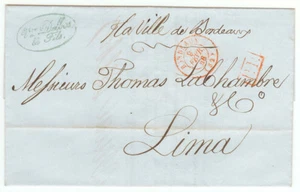 Ville de Bordeaux
Messieurs Thomas LaChambre
& Co
Lima